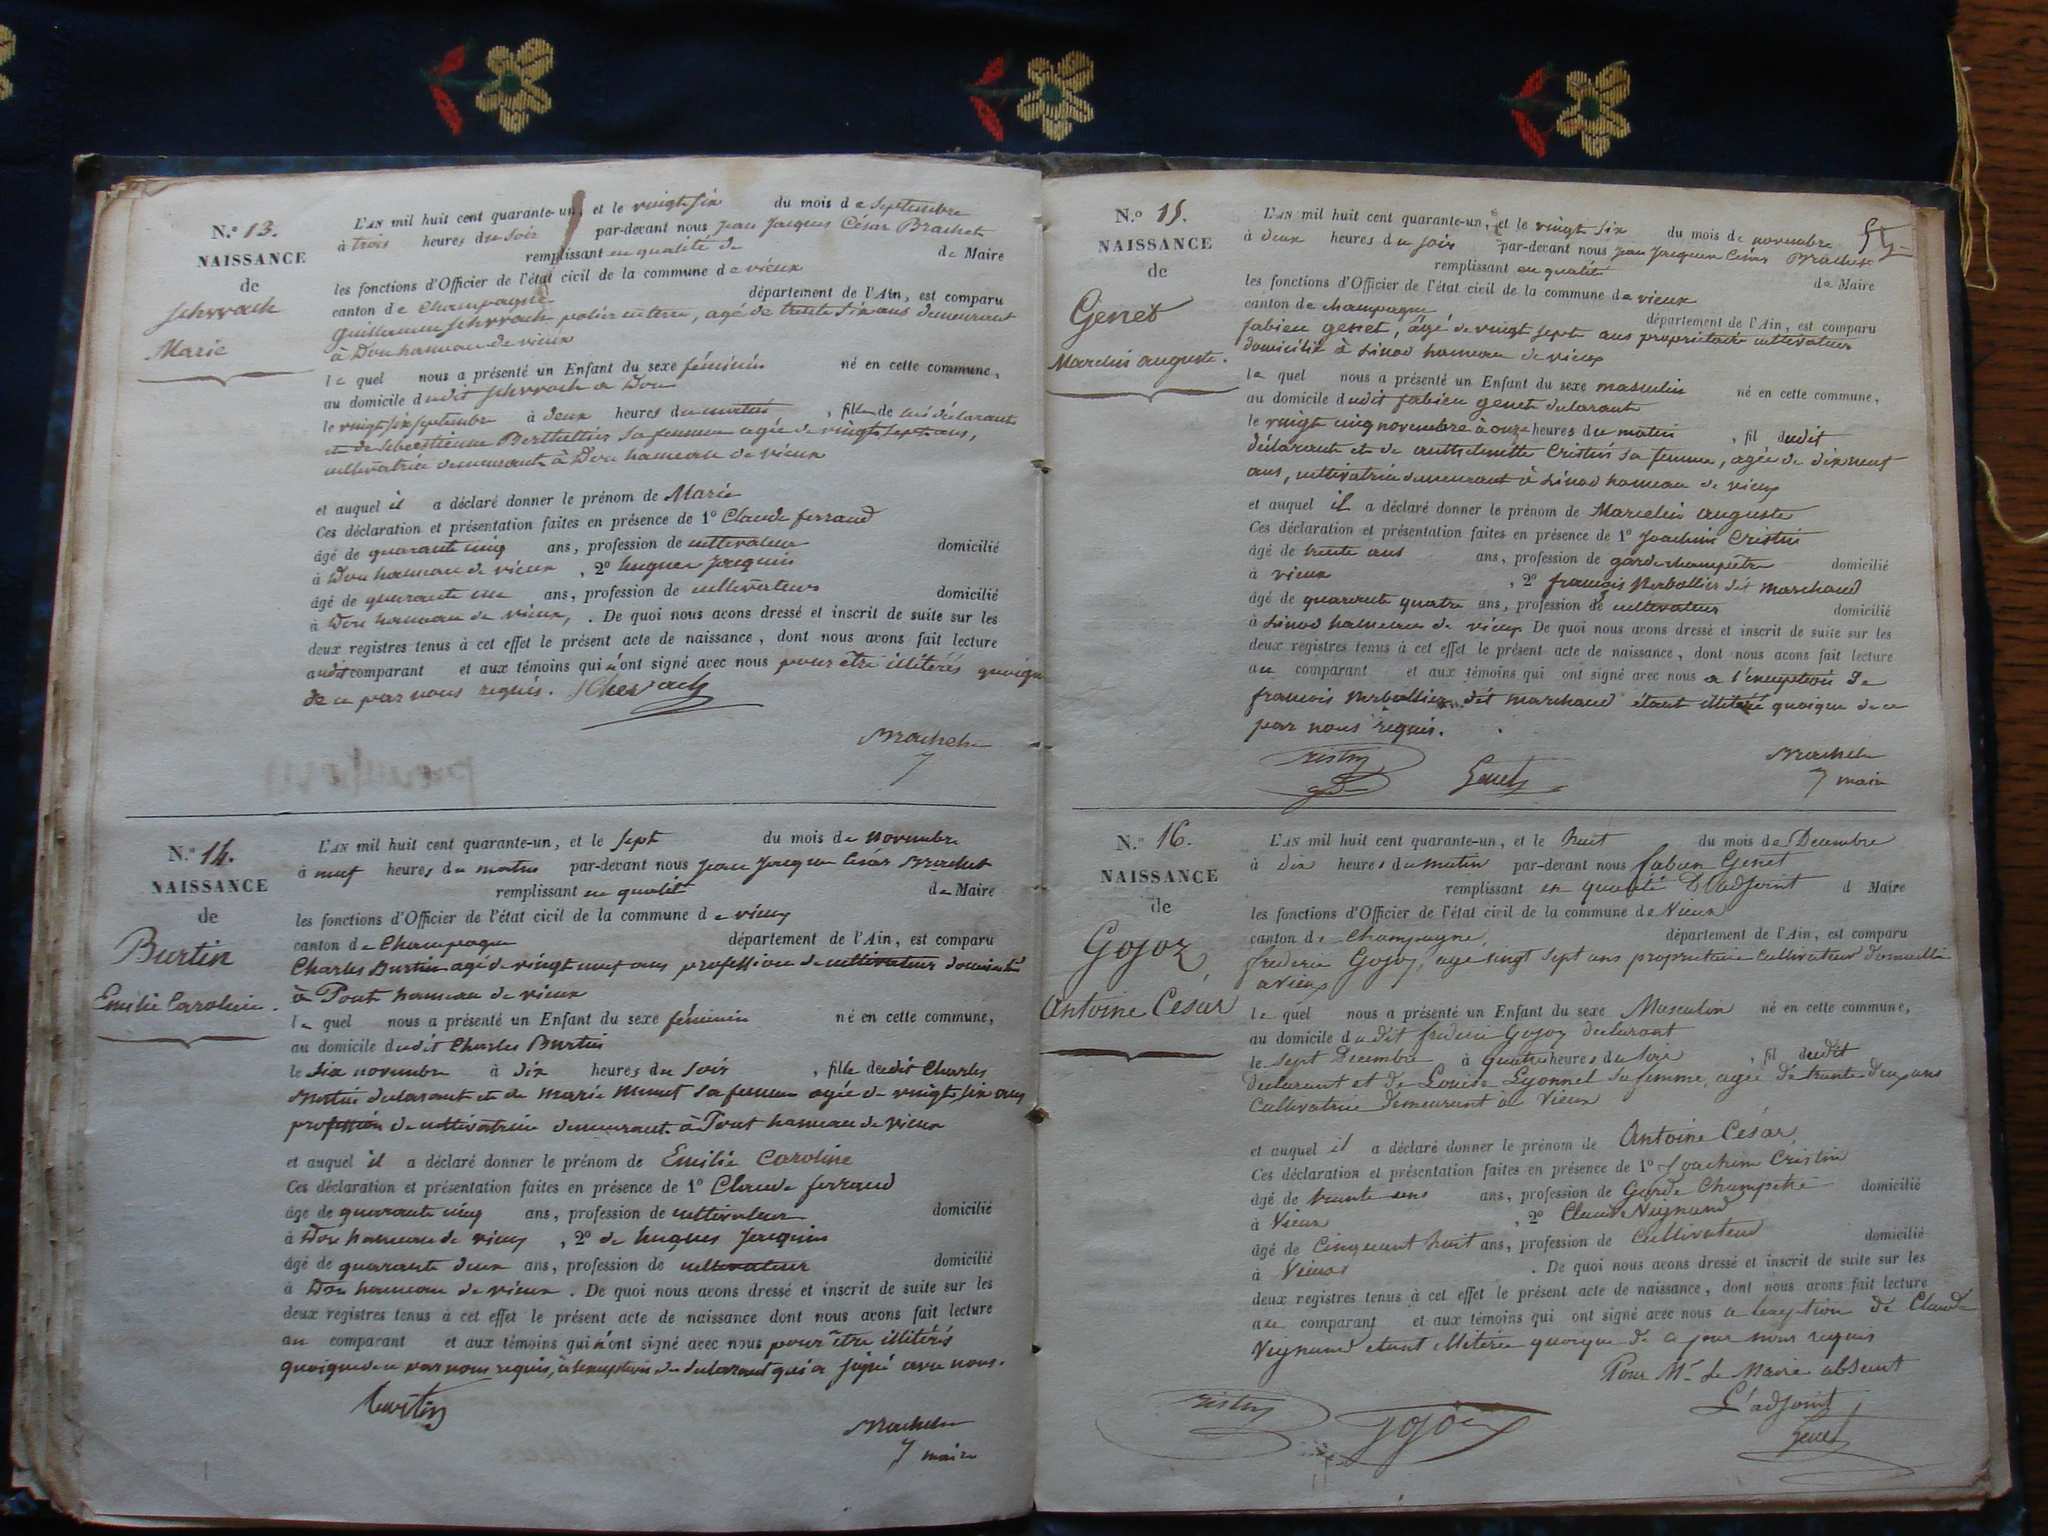 N.º 13.
NAISSANCE
de
Schvrach
Marie
L'AN mil huit cent quarante-un, et le vingt six du mois de septembre
à trois heures du soir par-devant nous jean jacques César Brachet
remplissant en qualité de de Maire
les fonctions d'Officier de l'état civil de la commune de vieux
canton de Champagne département de l'Ain, est comparu
guillaume schvrach, agé de trente six ans demeurant
à Don hameau de vieux
le quel nous a présenté un Enfant du sexe féminin né en cette commune,
au domicile dudit schvrach a Don
le vingt six septembre à deux heures du matin, fille de lui déclarant
et de Sébastienne Berthellier sa femme agée de vingt sept ans,
cultivatrice demeurant à Don hameau de vieux
et auquel il a déclaré donner le prénom de Marie
Ces déclaration et présentation faites en présence de 1º Claude ferraud
âgé de quarante cinq ans, profession de cultivateur domicilié
à Don hameau de vieux, 2º hugues jacquin
âgé de quarante un ans, profession de cultivateurs domicilié
à Don hameau de vieux, . De quoi nous avons dressé et inscrit de suite sur les
deux registres tenus à cet effet le présent acte de naissance, dont nous avons fait lecture
audit comparant et aux témoins qui n'ont signé avec nous pour être illitérés quoique
de ce par nous requis. Schevrach
Brachet
N.º 14.
NAISSANCE
de
Burtin
Emilie Caroline.
L'AN mil huit cent quarante-un, et le sept du mois de novembre
à neuf heures du matin par-devant nous jean jacques César Brachet
remplissant en qualité de Maire
les fonctions d'Officier de l'état civil de la commune de vieux
canton de Champagne département de l'Ain, est comparu
Charles Burtin agé de vingt neuf ans profession de cultivateur domicilié
à Pont hameau de vieux
le quel nous a présenté un Enfant du sexe féminin né en cette commune,
au domicile dudit Charles Burtin
le six novembre à dix heures du soir, fille dudit Charles
Burtin declarant et de marie Minet sa femme agée de vingt six ans
profession de cultivatrice demeurant à Pont hameau de vieux
et auquel il a déclaré donner le prénom de Emilie Caroline
Ces déclaration et présentation faites en présence de 1º Claude ferraud
âgé de quarante cinq ans, profession de cultivateur domicilié
à Don hameau de vieux, 2º de hugues jacquin
âgé de quarante deux ans, profession de cultivateur domicilié
à Don hameau de vieux. De quoi nous avons dressé et inscrit de suite sur les
deux registres tenus à cet effet le présent acte de naissance dont nous avons fait lecture
au comparant et aux témoins qui n'ont signé avec nous pour être illitérés
quoique de ce par nous requis, à l'exception du declarant qui a signé avec nous.
burtin
Brachet
maire
N.º 15.
NAISSANCE
de
Genet
Marcelin auguste.
L'AN mil huit cent quarante-un, et le vingt six du mois de novembre
à deux heures du soir par-devant nous jean jacques César Brachet
remplissant en qualité de Maire
les fonctions d'Officier de l'état civil de la commune de vieux
canton de champagne département de l'Ain, est comparu
fabien genet, âgé de vingt sept ans propriétaire cultivateur
domicilié à Linod hameau de vieux
le quel nous a présenté un Enfant du sexe masculin né en cette commune,
au domicile dudit fabien genet declarant
le vingt cinq novembre à onze heures du matin, fil dudit
déclarant et de anthelmette Cristin sa femme, agée de dix neuf
ans, cultivatrice demeurant à Linod hameau de vieux
et auquel il a déclaré donner le prénom de Marcelin auguste
Ces déclaration et présentation faites en présence de 1º joachim Cristin
âgé de trente ans ans, profession de garde champêtre domicilié
à vieux, 2º françois Berbollier dit marchand
âgé de quarante quatre ans, profession de cultivateur domicilié
à Linod hameau de vieux De quoi nous avons dressé et inscrit de suite sur les
deux registres tenus à cet effet le présent acte de naissance, dont nous avons fait lecture
au comparant et aux témoins qui ont signé avec nous a l'exception de
francois Berbollier dit marchand étant illitéré quoique de ce
par nous requis.
ristin
Genet
Brachet
maire
N.º 16.
NAISSANCE
de
Gojoz
Antoine César
L'AN mil huit cent quarante-un, et le huit du mois de Decembre
à dix heures du matin par-devant nous fabien Genet
remplissant en qualité D'adjoint d Maire
les fonctions d'Officier de l'état civil de la commune de Vieux
canton de Champagne département de l'Ain, est comparu
frederic Gojoz, agé vingt sept ans propriétaire cultivateur domicilié
a vieux
le quel nous a présenté un Enfant du sexe Masculin né en cette commune,
au domicile dudit frederic Gojoz declarant
le sept Decembre à quatre heures du soir, fil dudit
declarant et de Louise Lyonnel sa femme, agée de trente deux ans
Cultivatrice demeurant à Vieux
et auquel il a déclaré donner le prénom de Antoine César
Ces déclaration et présentation faites en présence de 1º Joachim Cristin
âgé de trente ans ans, profession de Garde Champetre domicilié
à Vieux, 2º Claude Vuynand
âgé de Cinquant huit ans, profession de Cultivateur domicilié
à Vieux. De quoi nous avons dressé et inscrit de suite sur les
deux registres tenus à cet effet le présent acte de naissance, dont nous avons fait lecture
au comparant et aux témoins qui ont signé avec nous a lexeption de Claude
Vuynand etant illitéré quoique de ce par nous requis
Pour Mr le Maire absent
L'adjoint
Genet
ristin
gojoz